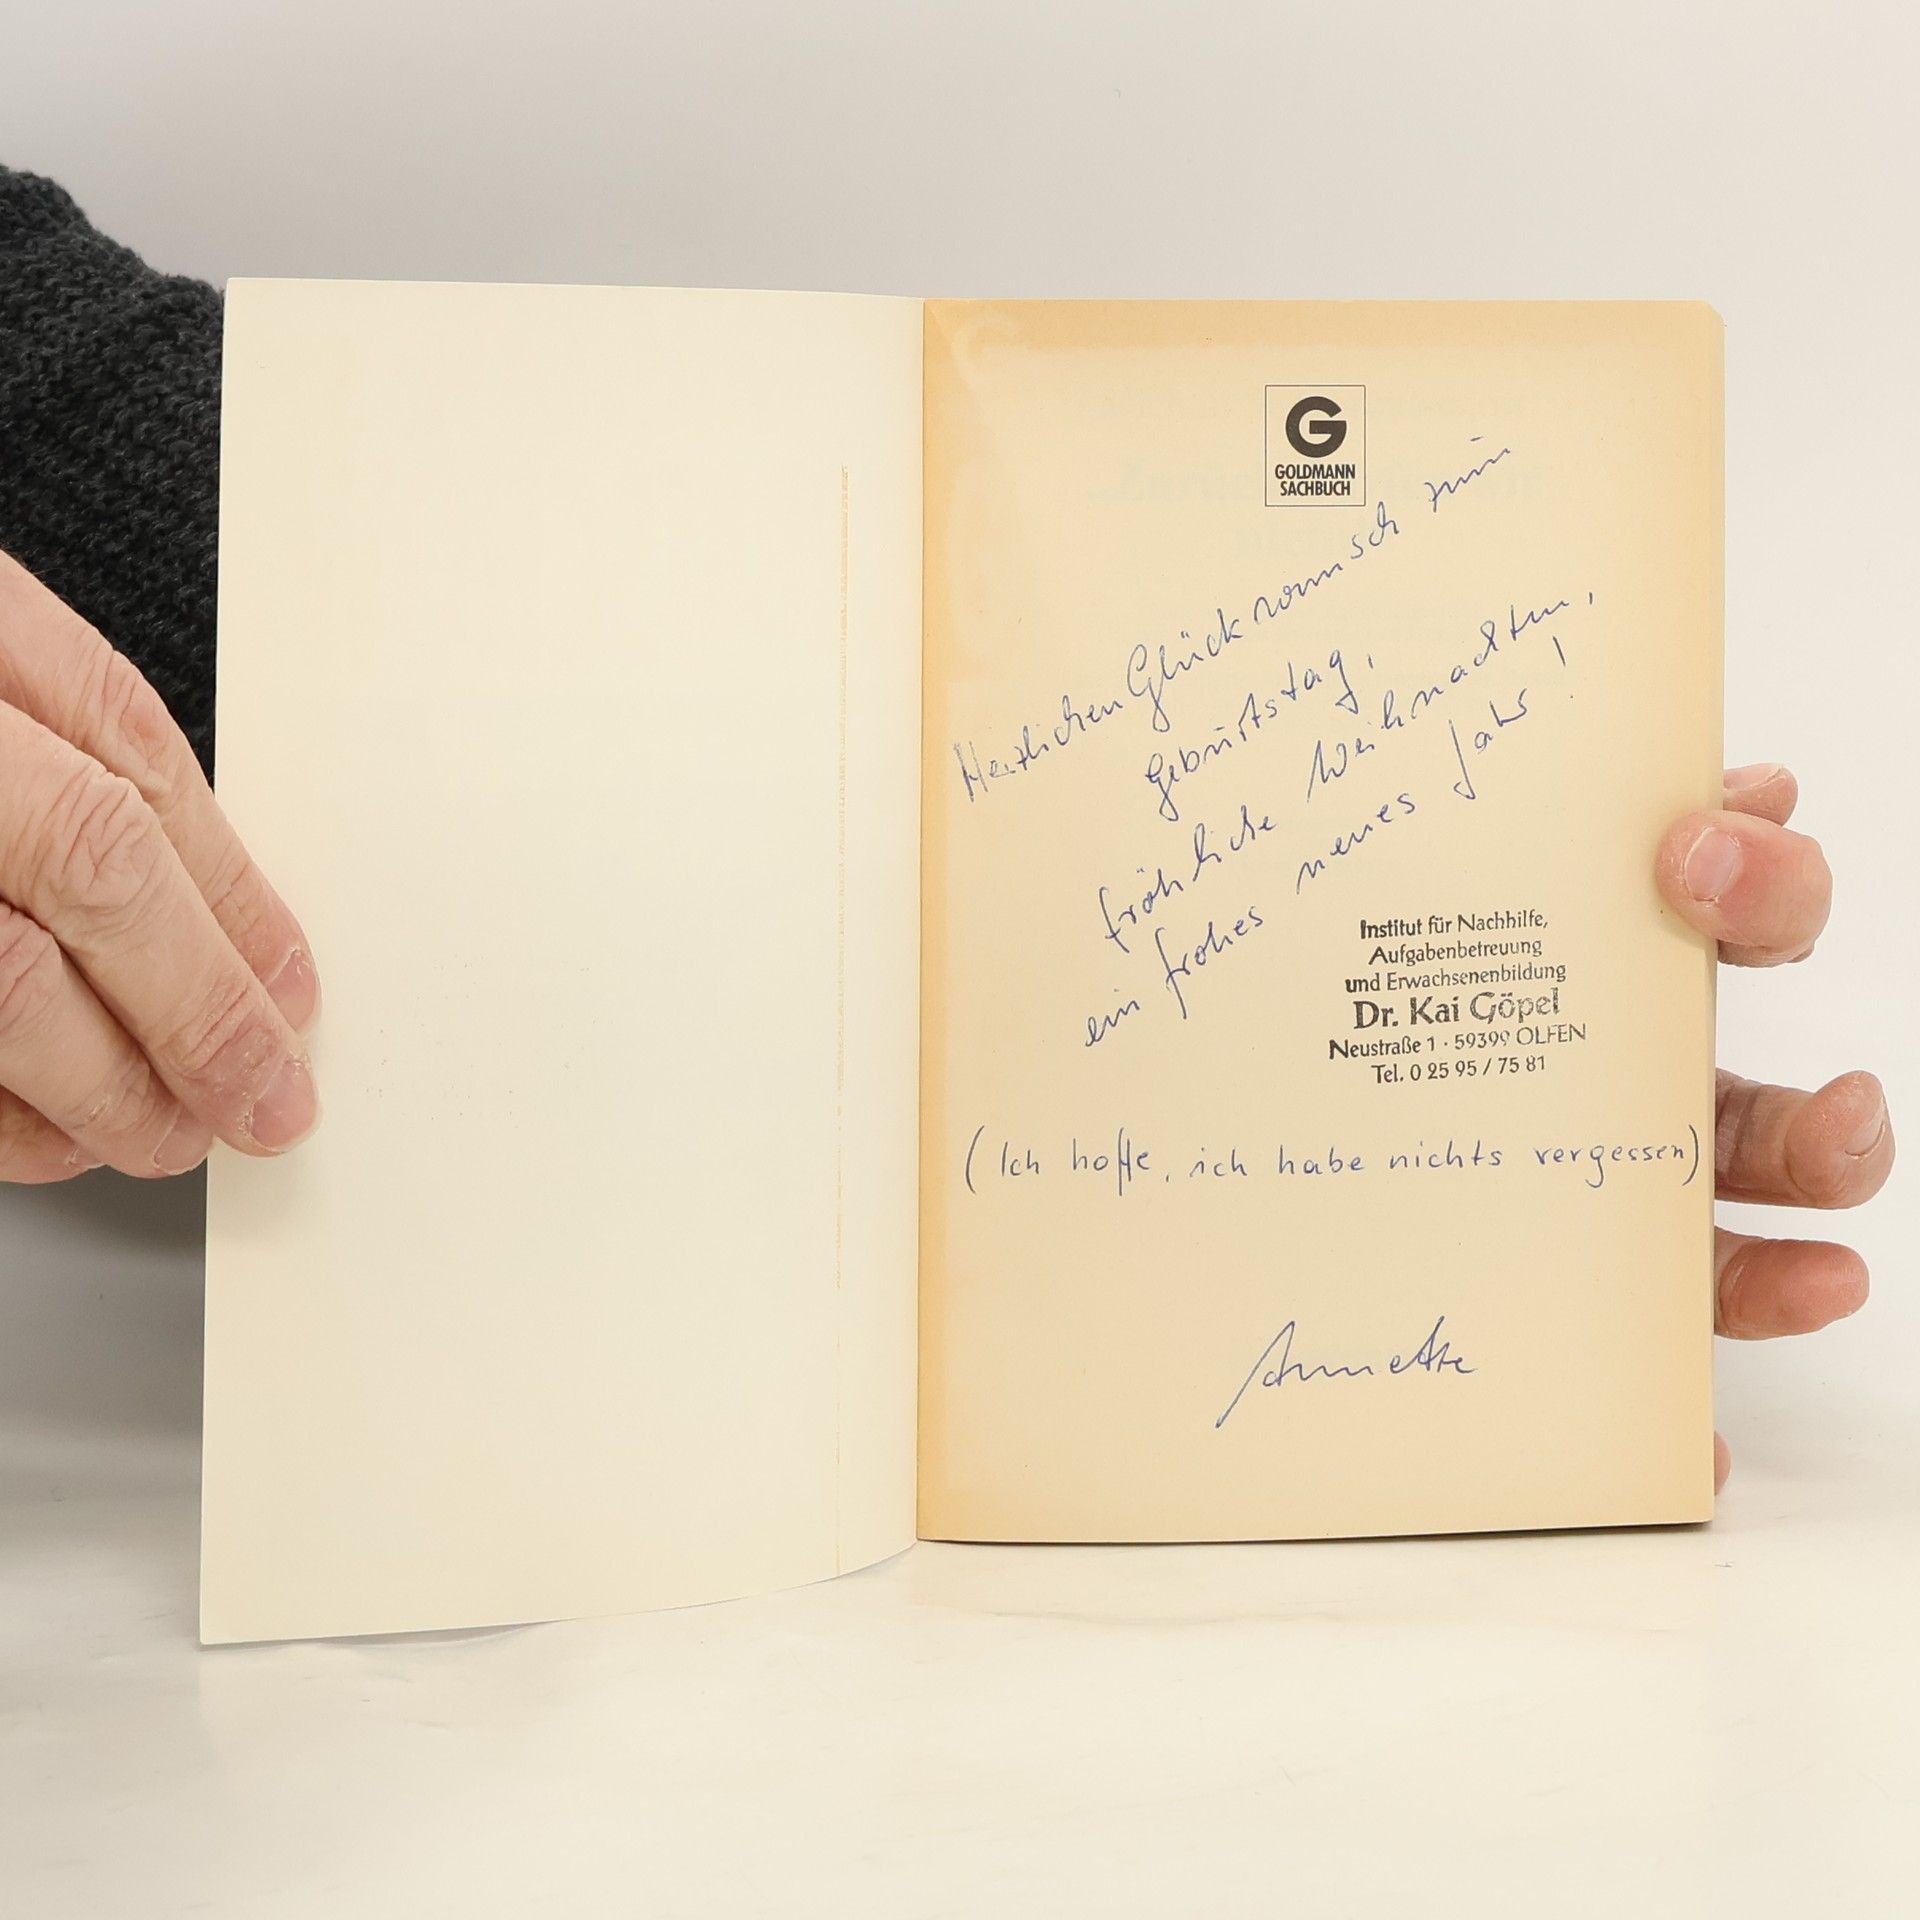 G
GOLDMANN
SACHBUCH
Herzlichen Glückwunsch zum
Geburtstag,
fröhliche Weihnachten,
ein frohes neues Jahr!
Institut für Nachhilfe,
Aufgabenbetreuung
und Erwachsenenbildung
Dr. Kai Göpel
Neustraße 1 · 59399 OLFEN
Tel. 0 25 95 / 75 81
(Ich hoffe, ich habe nichts vergessen)
Annette